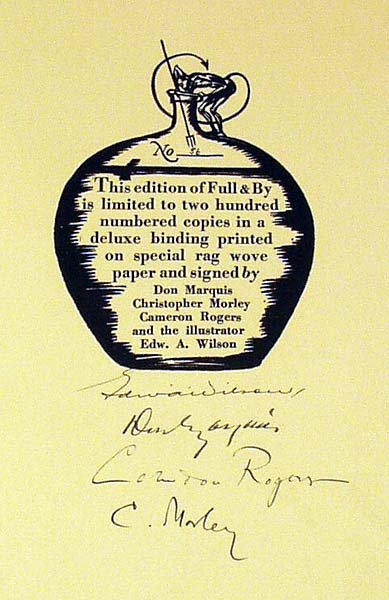 No. 56
This edition of Full & By
is limited to two hundred
numbered copies in a
deluxe binding printed
on special rag wove
paper and signed by
Don Marquis
Christopher Morley
Cameron Rogers
and the illustrator
Edw. A. Wilson
Edw. A. Wilson
Don Marquis
Cameron Rogers
C. Morley